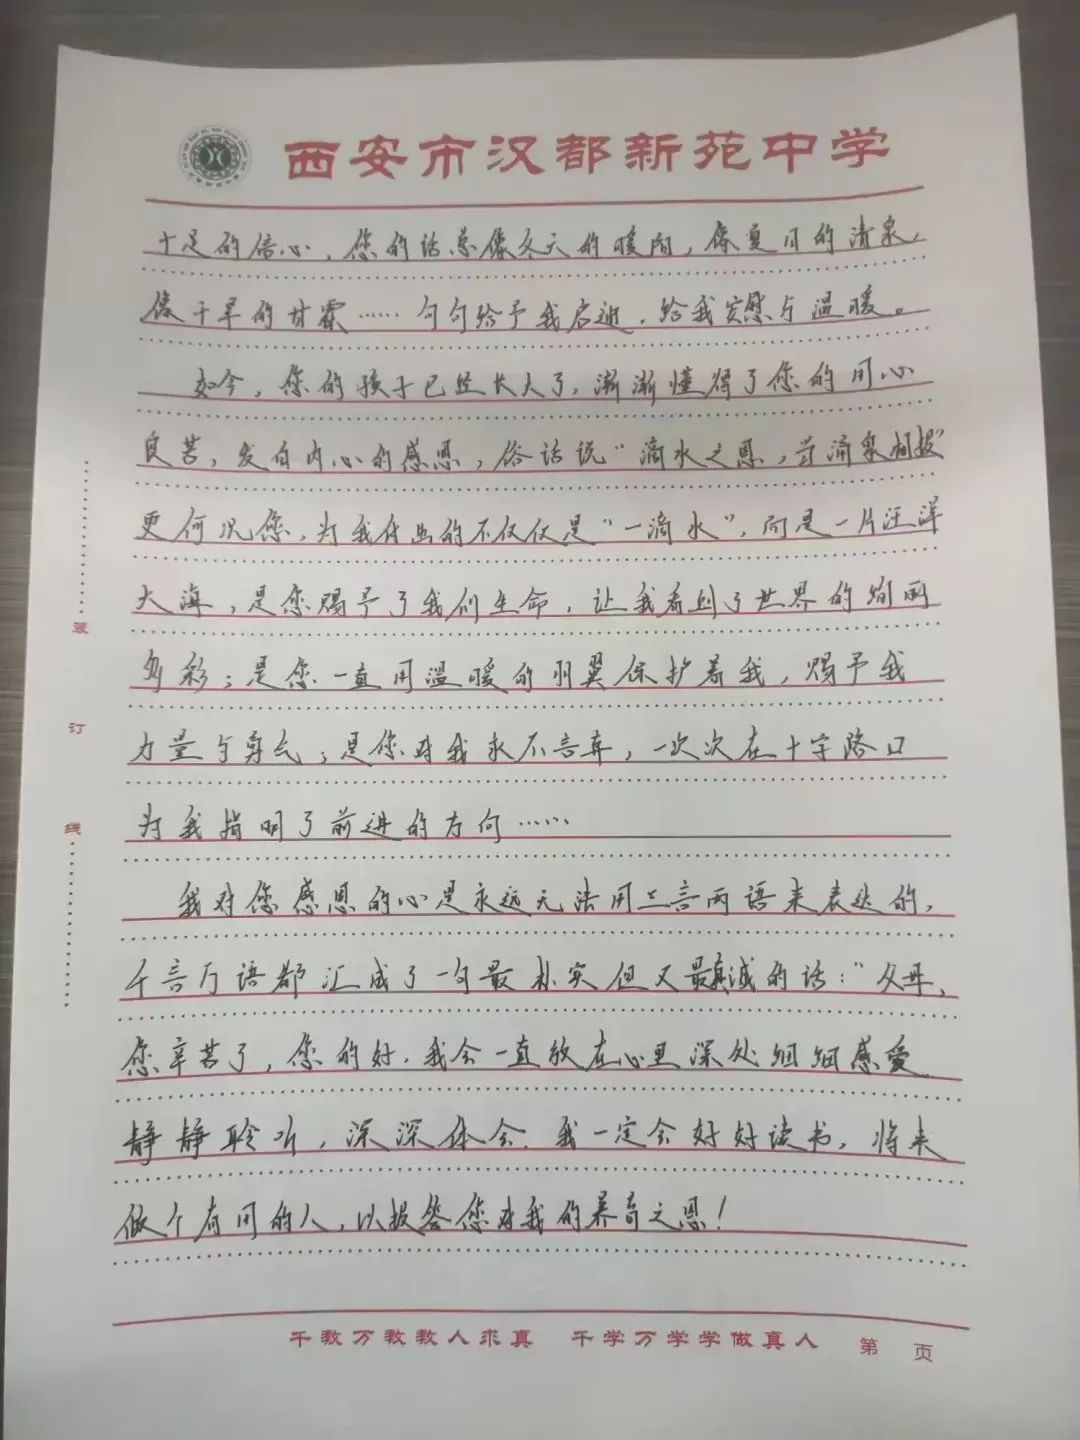 西安市汉都新苑中学
十足的信心，您的话总像冬天的暖阳，像夏日的清泉，
像干旱的甘霖……句句给予我启迪，给我安慰与温暖。
如今，您的孩子已经长大了，渐渐懂得了您的用心
良苦，发自内心的感恩，俗话说“滴水之恩，当涌泉相报”
更何况您，为我付出的不仅仅是“一滴水”，而是一片汪洋
大海，是您赐予了我们生命，让我看到了世界的绚丽
多彩；是您一直用温暖的羽翼保护着我，赐予我
力量与勇气；是您对我永不言弃，一次次在十字路口
为我指明了前进的方向……
我对您感恩的心是永远无法用三言两语来表达的，
千言万语都汇成了一句最朴实但又最真诚的话：“父母，
您辛苦了，您的好，我会一直放在心里深处细细感爱
静静聆听，深深体会，我一定会好好读书，将来
做个有用的人，以报答您对我的养育之恩！
装
订
线
千教万教教人求真 千学万学学做真人 第 页